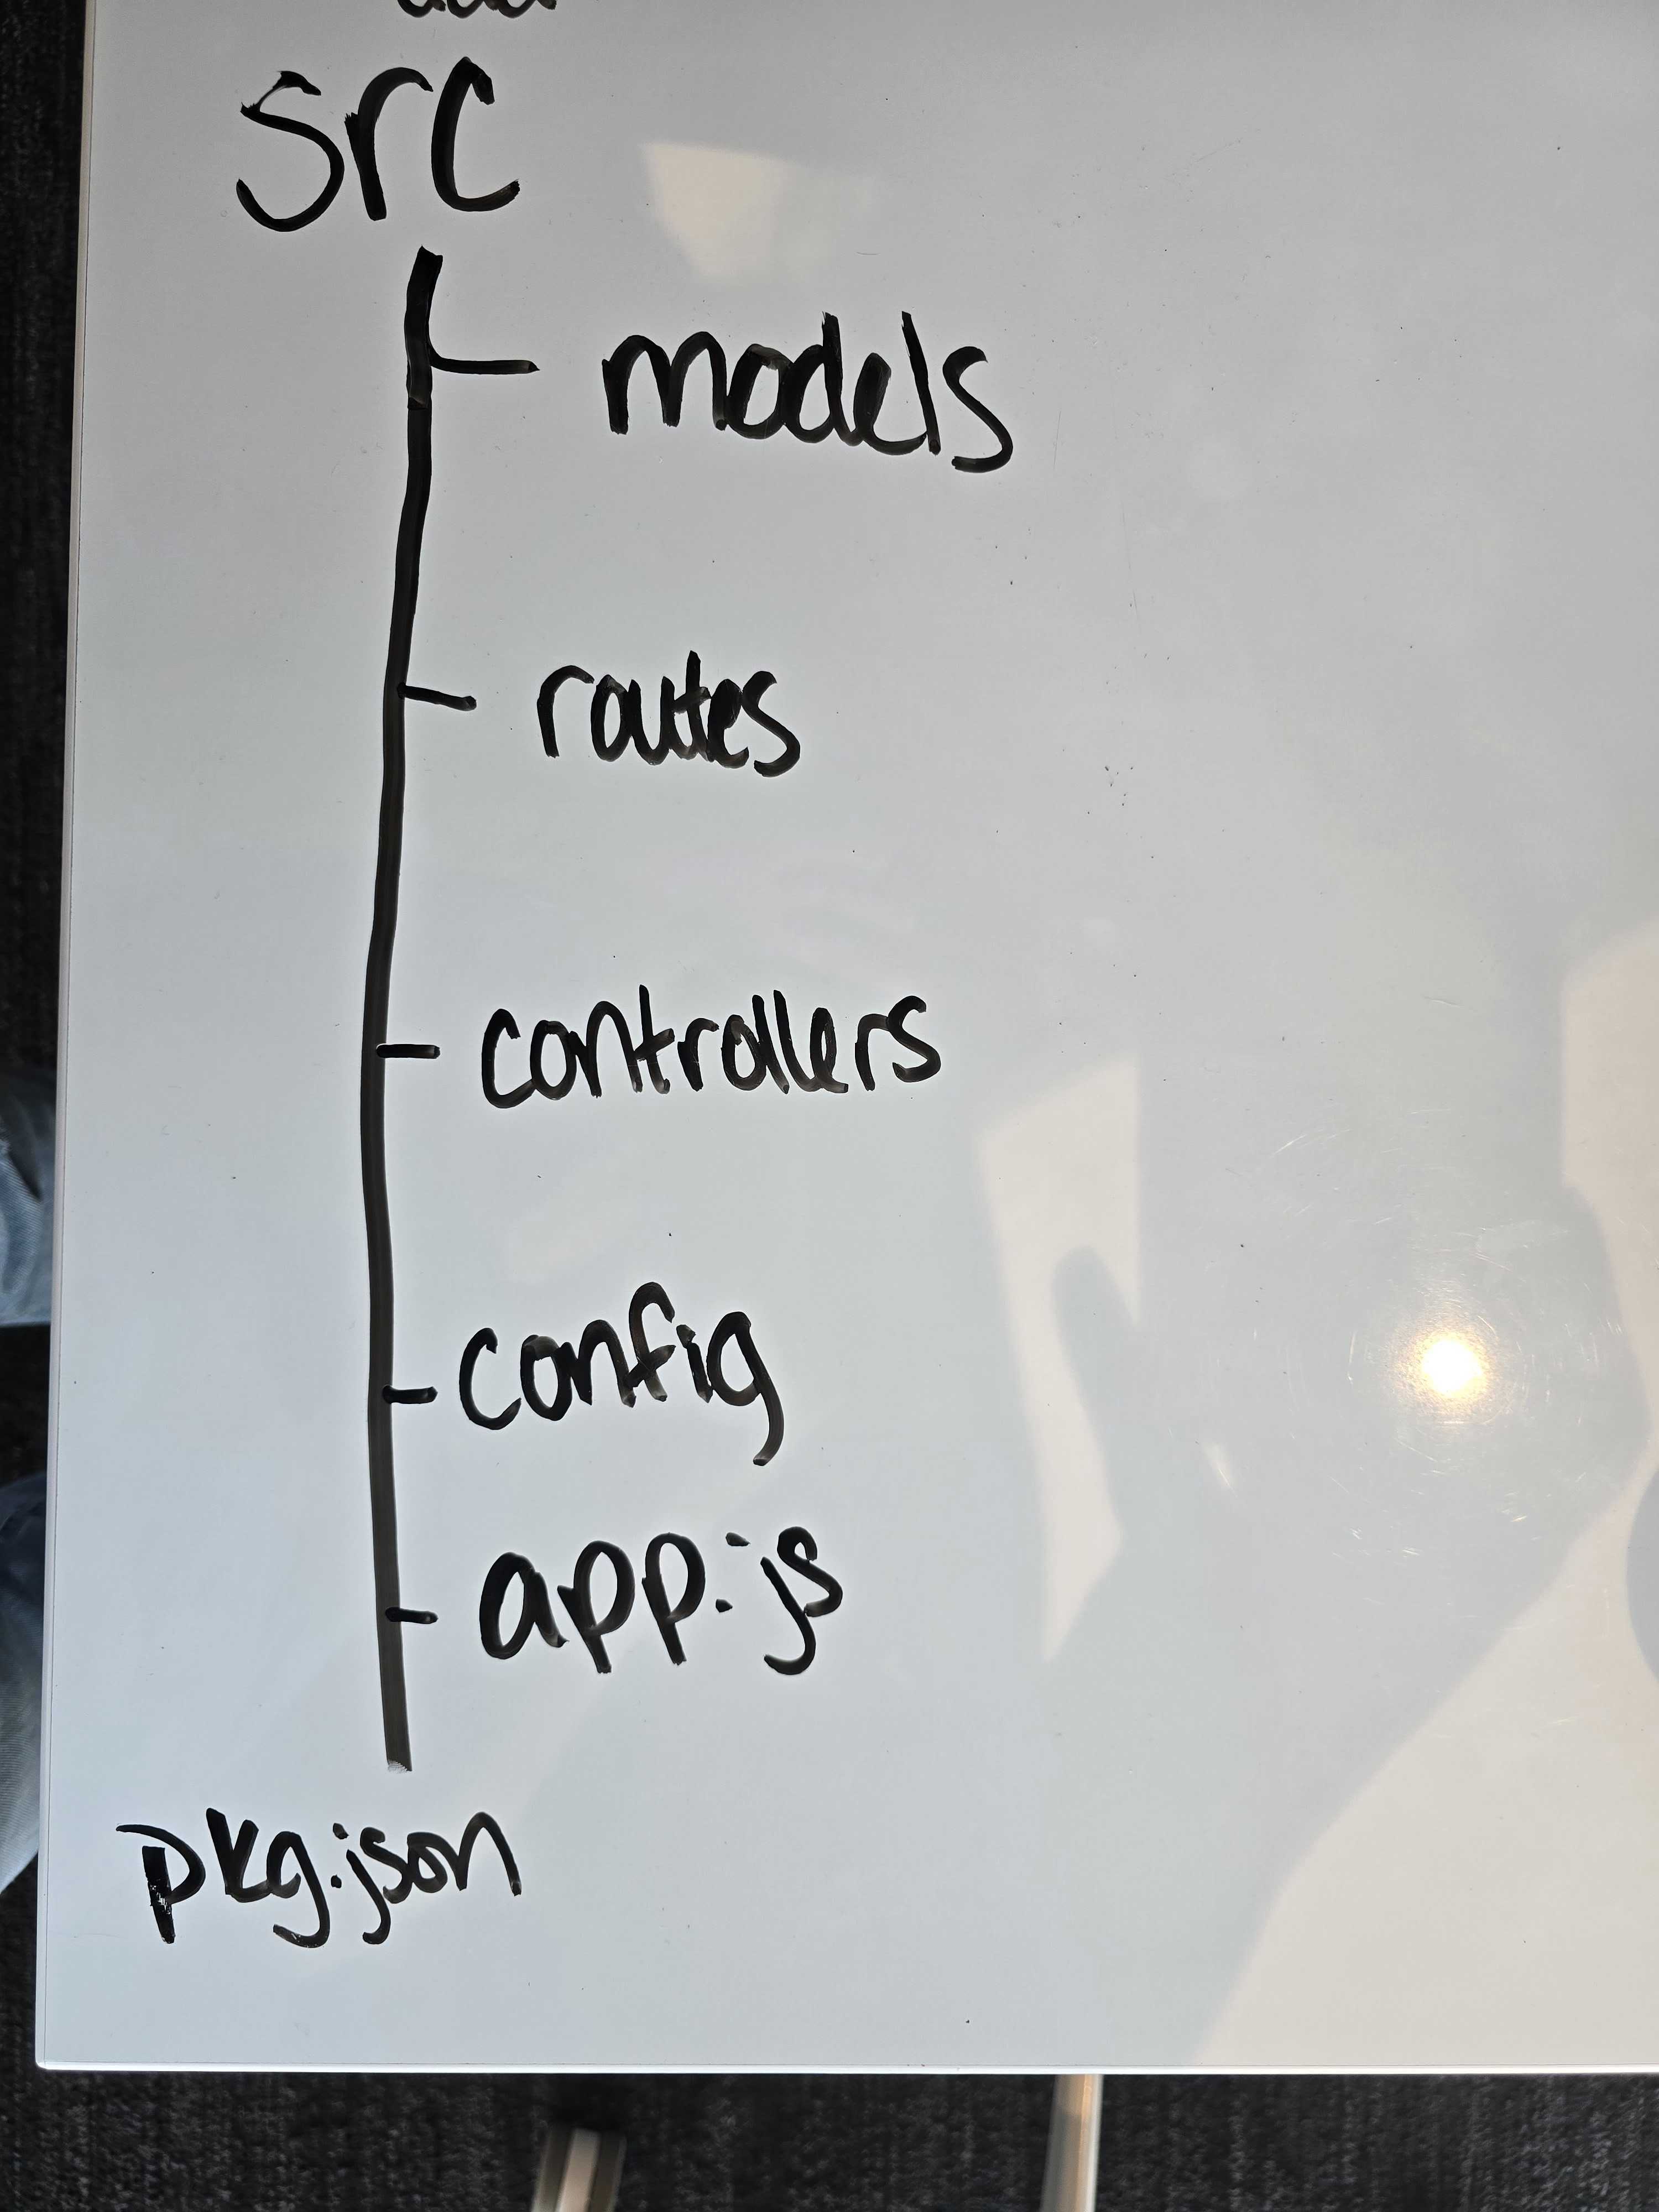 src
models
routes
controllers
config
app.js
pkg.json